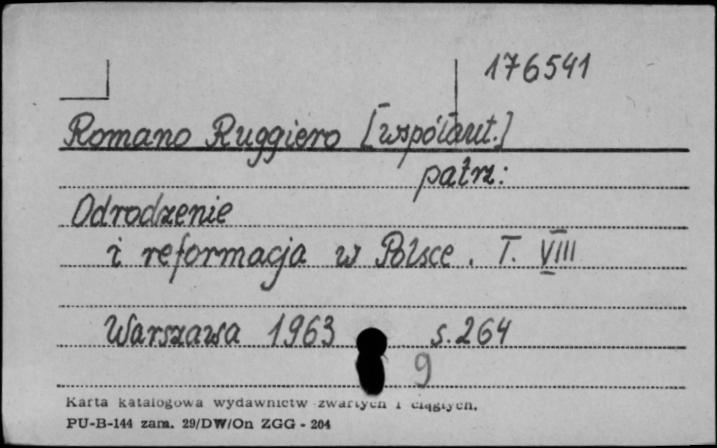 176541
Romano Ruggiero [współaut.]
patrz:
Odrodzenie
i reformacja w Polsce. T. VIII
Warszawa 1963 s. 264
9
Karta katalogowa wydawnictw zwartych i ciągłych.
PU-B-144 zam. 29/DW/On ZGG - 204